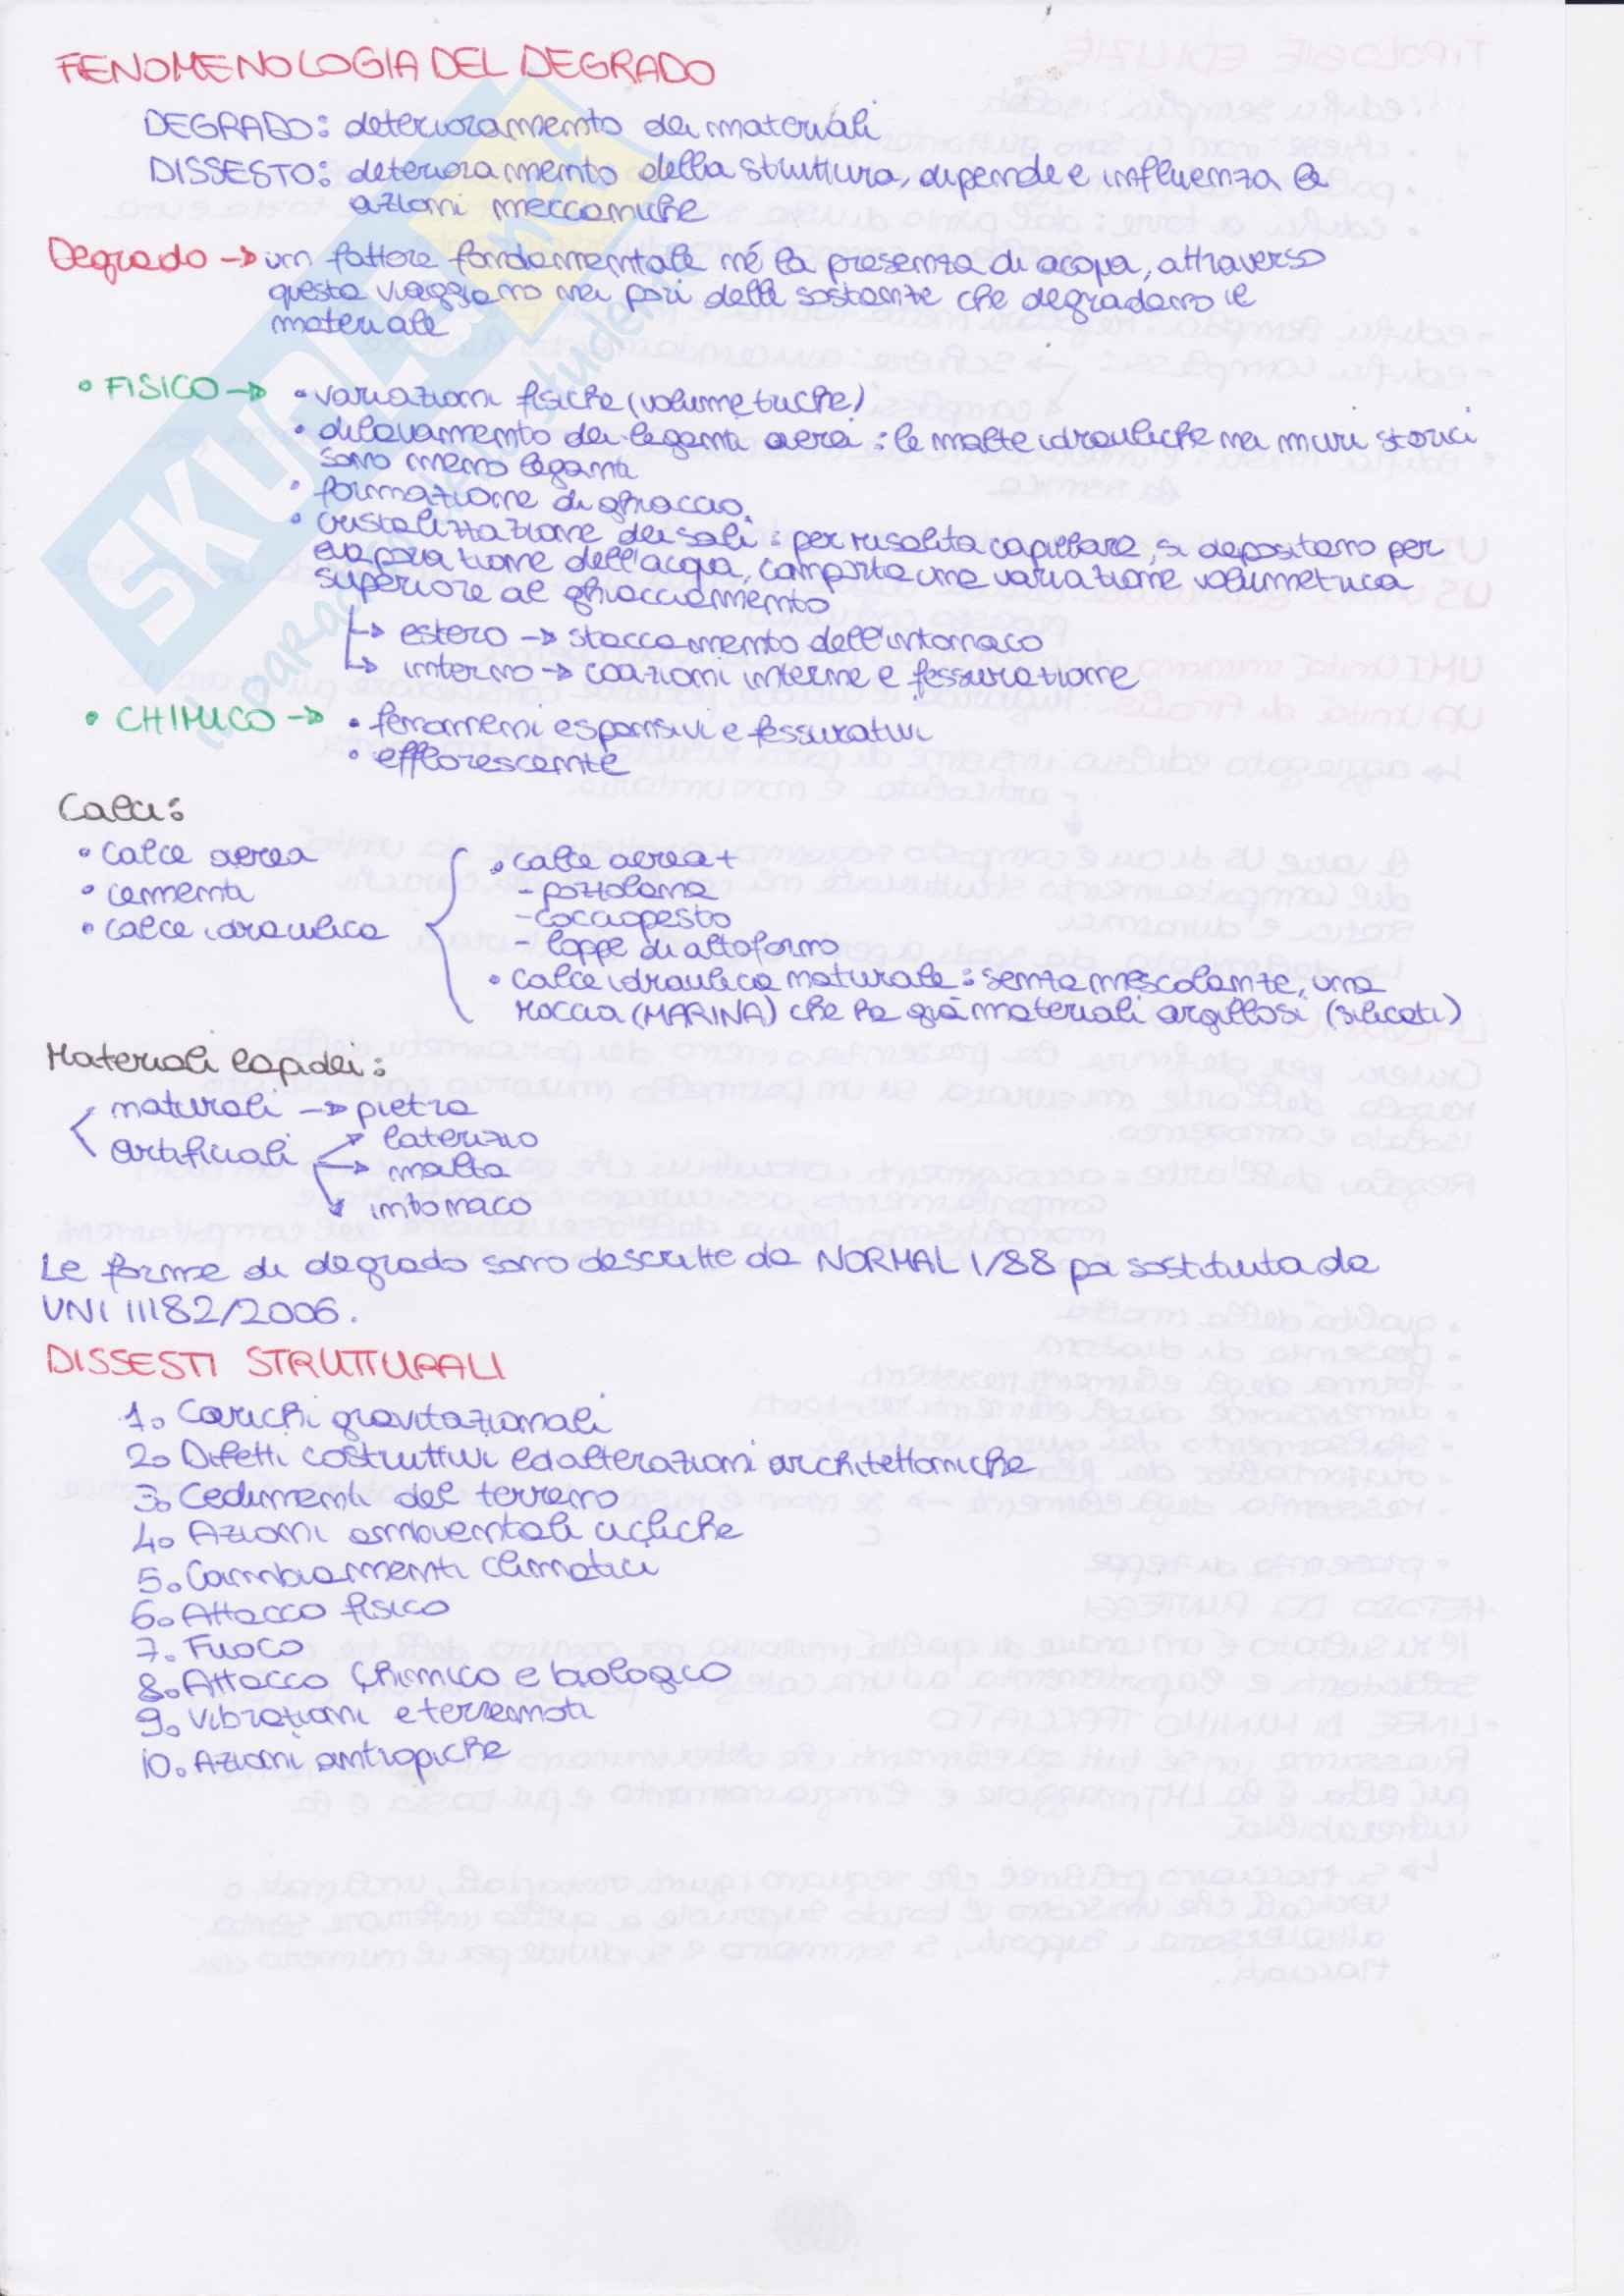 FENOMENOLOGIA DEL DEGRADO
DEGRADO: deterioramento dei materiali
DISSESTO: deterioramento della struttura, dipende e influenza le
azioni meccaniche
Degrado → un fattore fondamentale né la presenza di acqua, attraverso
questa viaggiano nei pori delle sostanze che degradano il
materiale
• FISICO → • variazioni fisiche (volumetriche)
• dilavamento dei leganti aerei: le malte idrauliche nei muri storici
sono meno leganti
• formazione di ghiaccio.
• cristalizzazione dei sali: per risalita capillare, si depositano per
evaporazione dell'acqua, comporta una variazione volumetrica
superiore al ghiacciamento
↳ estero → staccamento dell'intonaco
↳ interno → coazioni interne e fessurazione
• CHIMICO → • fenomeni espansivi e fessurativi
• efflorescenze
Calci:
• calce aerea
• cementi
• calce idraulica
• calce aerea +
- pozzolana
- cocciopesto
- loppe di altoforno
• calce idraulica naturale: senza mescolanze, una
roccia (MARINA) che ha già materiali argillosi (silicati)
Materiali lapidei:
naturali → pietra
artificiali → laterizio
→ malta
→ intonaco
Le forme di degrado sono descritte da NORMAL 1/88 poi sostituita da
UNI 11182/2006.
DISSESTI STRUTTURALI
1. Carichi gravitazionali
2. Difetti costruttivi ed alterazioni architettoniche
3. Cedimenti del terreno
4. Azioni ambientali cicliche
5. Cambiamenti climatici
6. Attacco fisico
7. Fuoco
8. Attacco chimico e biologico
9. Vibrazioni e terremoti
10. Azioni antropiche